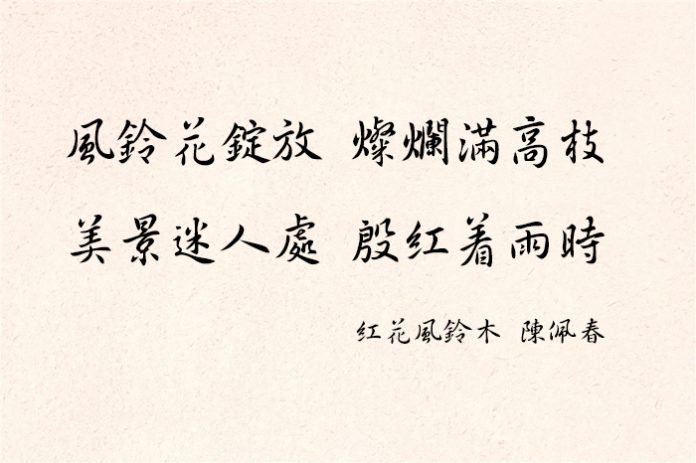 風鈴花錠放 燦爛滿高枝
美景迷人處 殷紅着雨時
紅花風鈴木 陳佩春